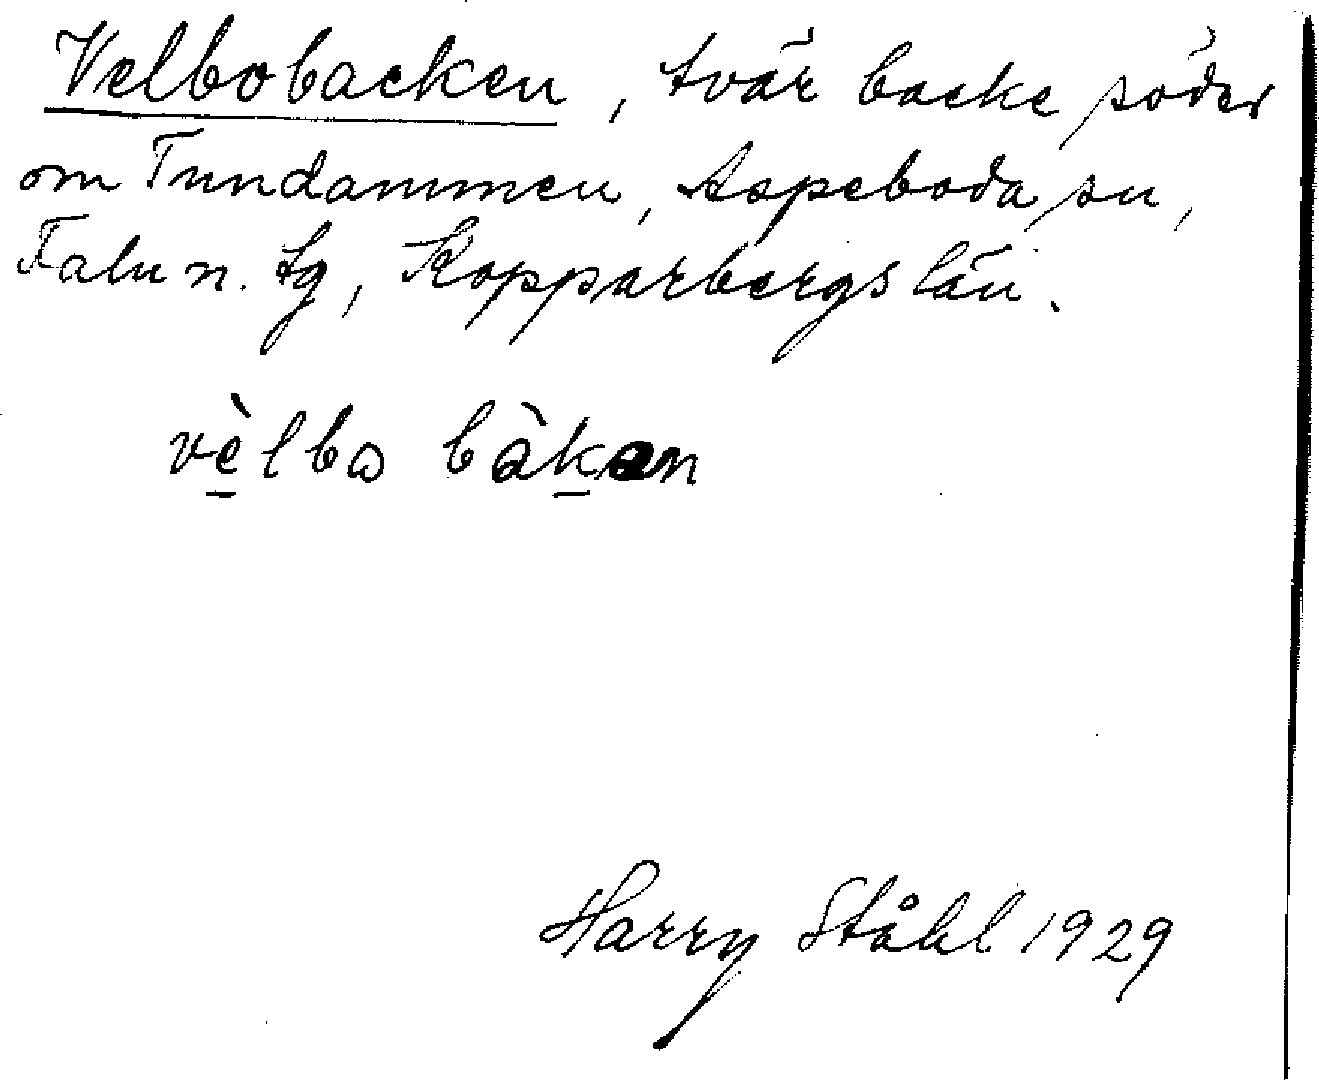 Velbobacken, tvär backe söder
om Tundammen, Aspeboda sn,
Falu n. tg, Kopparbergs län.
vèlbo bàkan
Harry Ståhl 1929